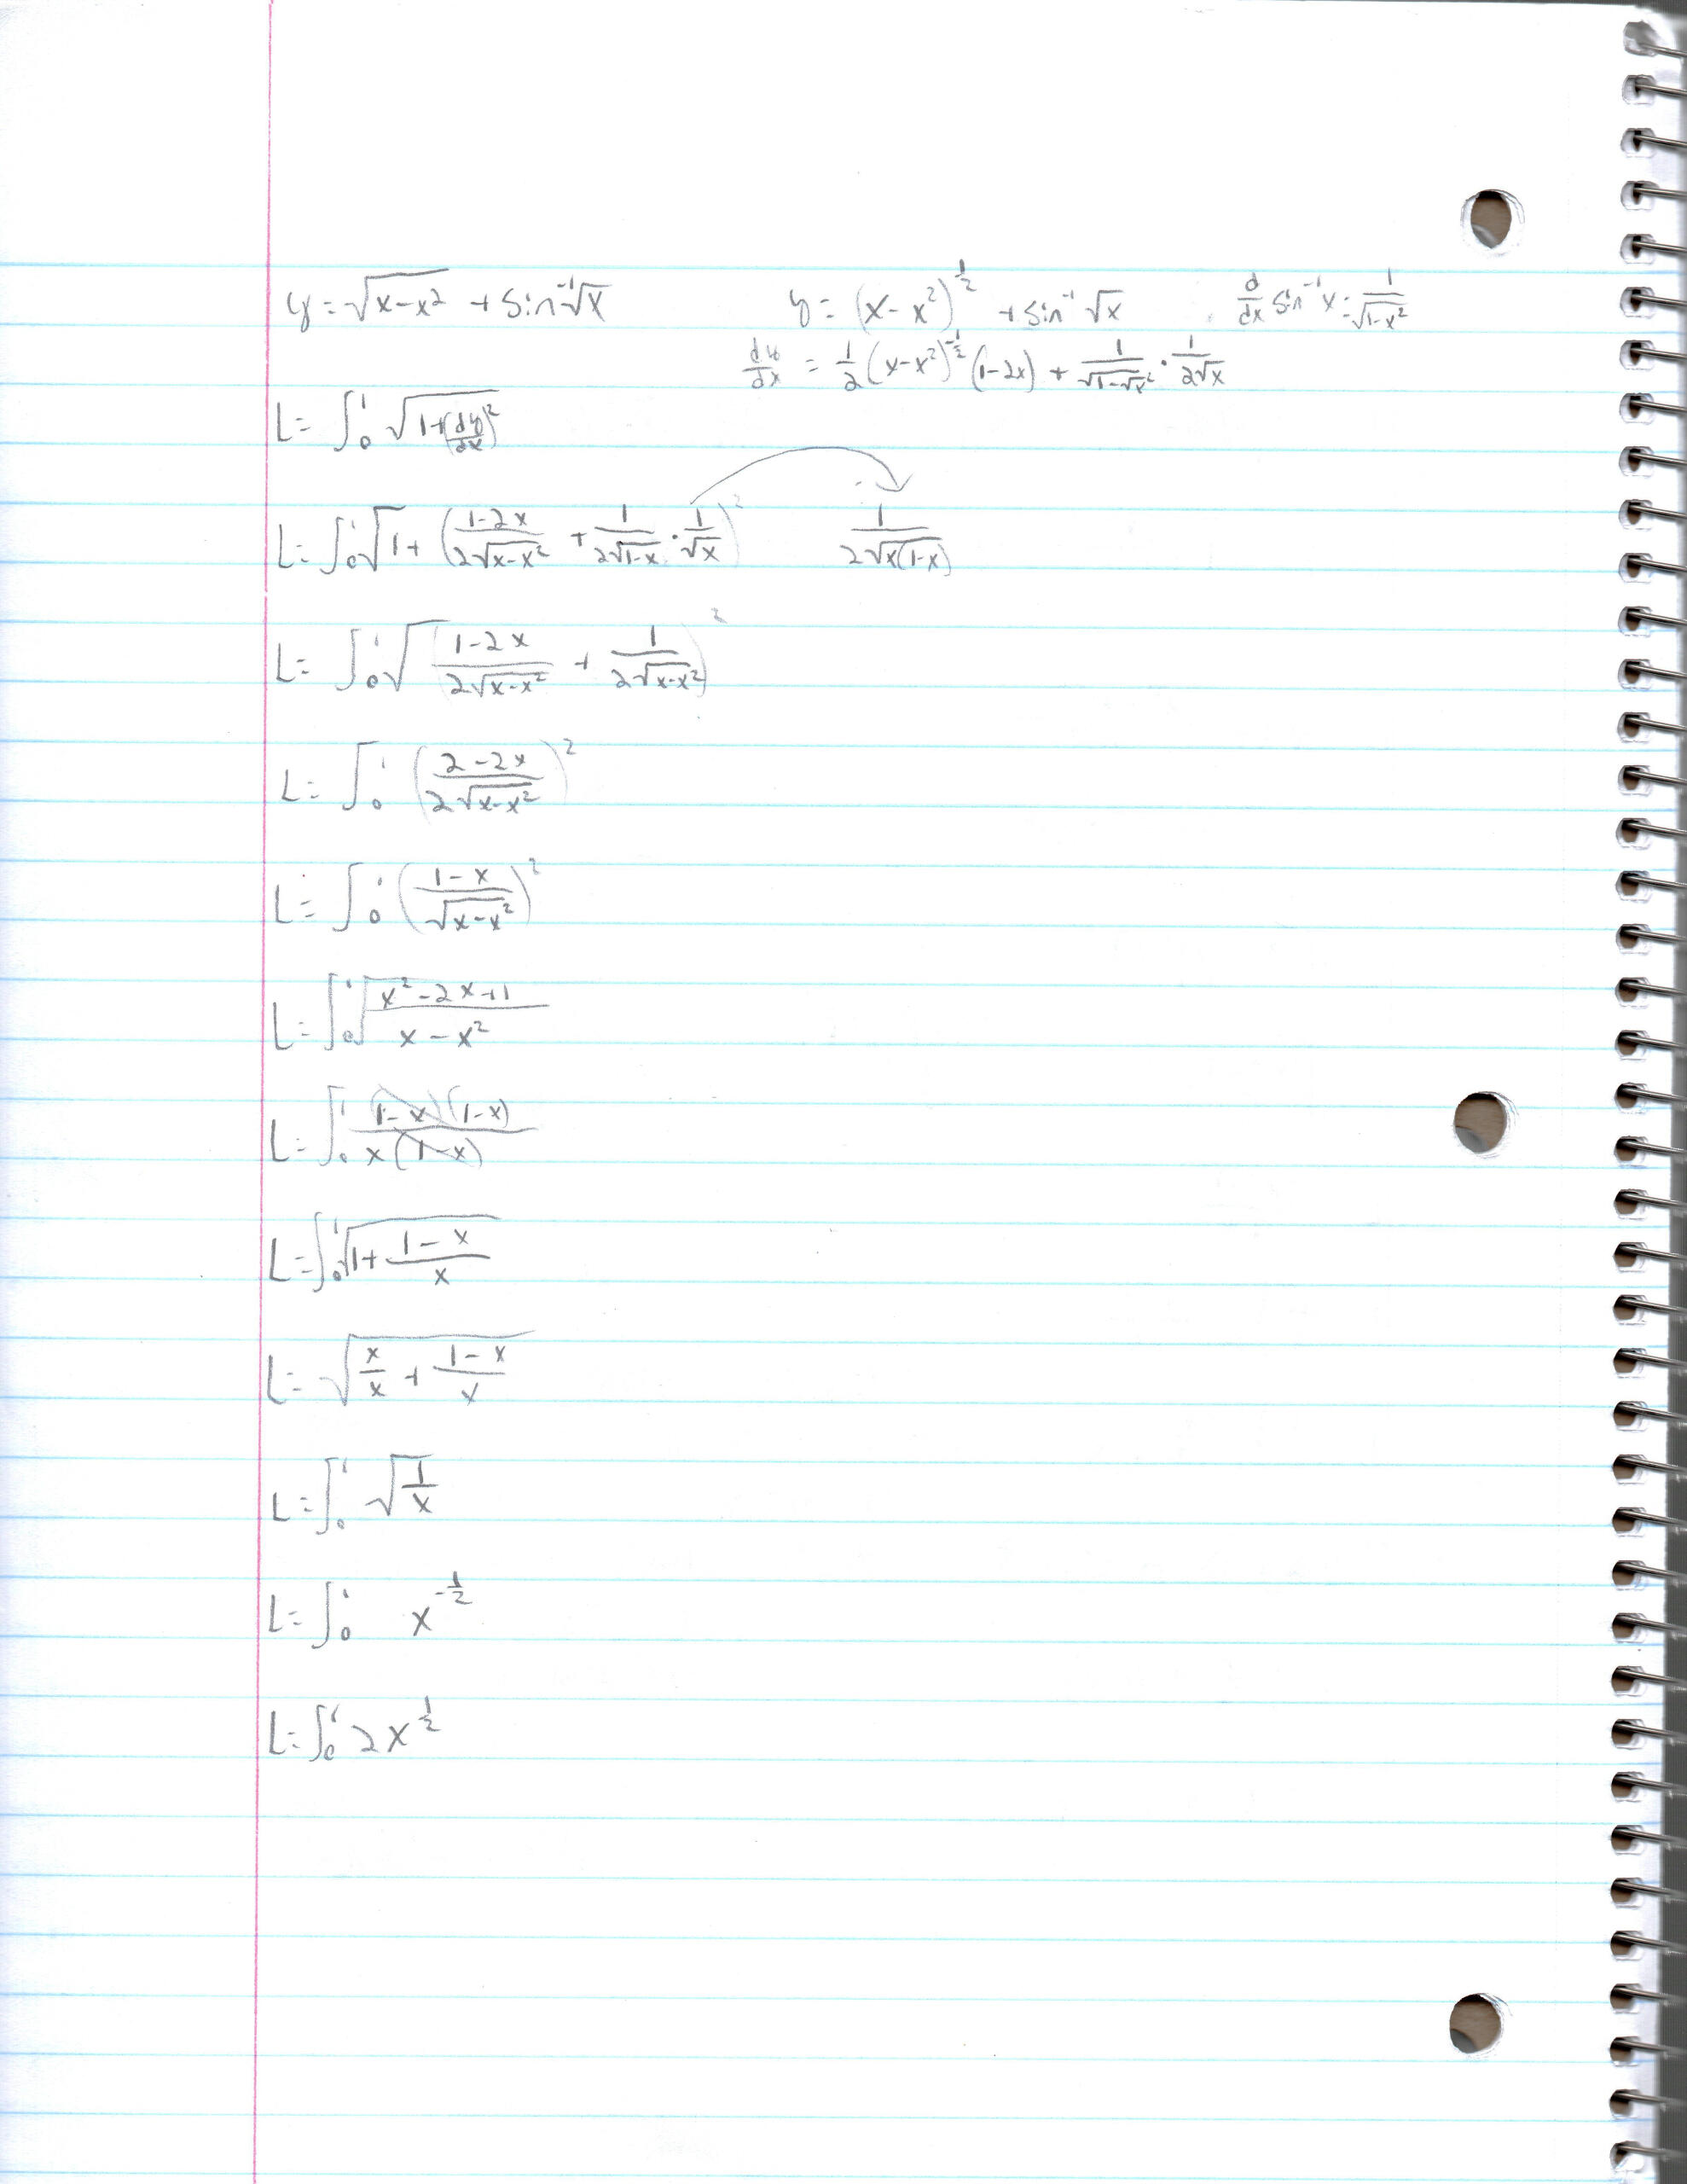 y = √(x-x²) + Sin⁻¹√x    y = (x-x²)^(1/2) + Sin⁻¹ √x    d/dx Sin⁻¹ x = 1/√(1-x²)
dy/dx = 1/2 (x-x²)^(-1/2) (1-2x) + 1/√(1-√x²) · 1/(2√x)
L = ∫₀¹ √(1+(dy/dx)²)
L = ∫₀¹ √1 + ((1-2x)/(2√(x-x²)) + 1/(2√(1-x)) · 1/√x)²    1/(2√(x(1-x)))
L = ∫₀¹ √((1-2x)/(2√(x-x²)) + 1/(2√(x-x²)))²
L = ∫₀¹ ((2-2x)/(2√(x-x²)))²
L = ∫₀¹ ((1-x)/√(x-x²))²
L = ∫₀¹ √((x²-2x+1)/(x-x²))
L = ∫₀¹ (1-x)(1-x)/(x(1-x))
L = ∫₀¹ √(1+(1-x)/x)
L = √(x/x + (1-x)/x)
L = ∫₀¹ √(1/x)
L = ∫₀¹ x^(-1/2)
L = ∫₀¹ 2x^(1/2)